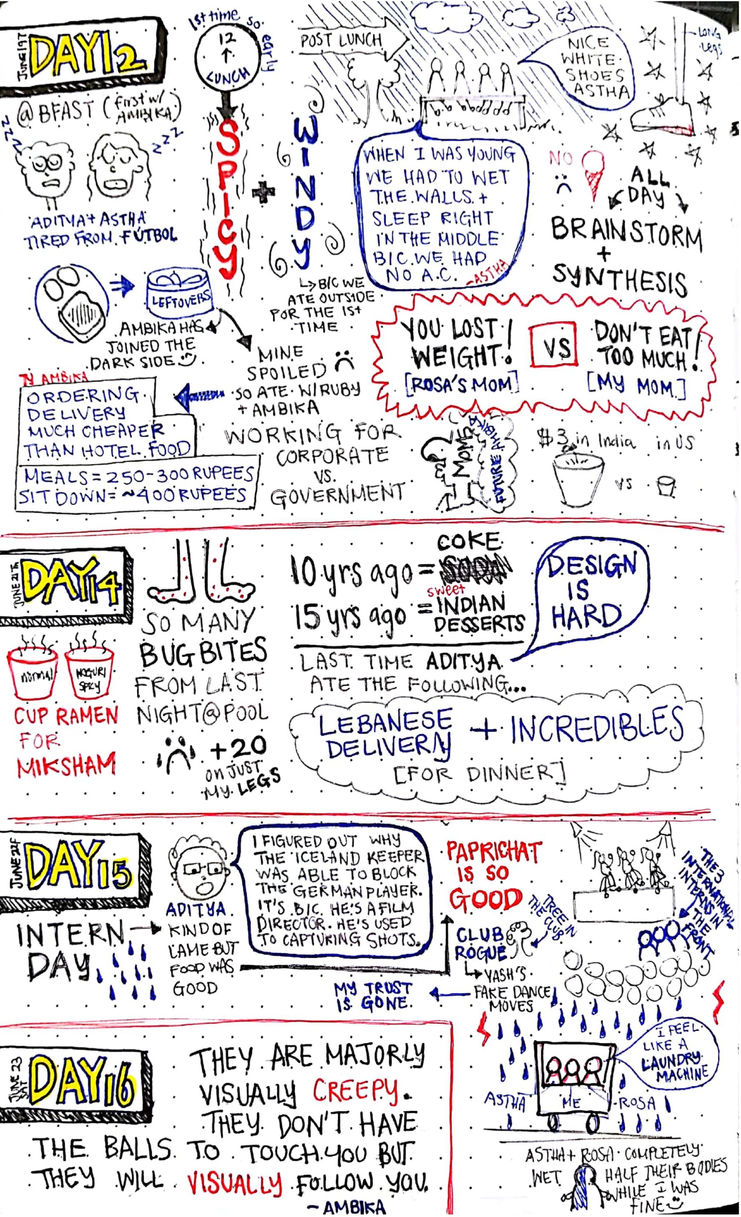 DAY12
@ BFAST (first w/
AMBIKA)
zzz
zzz
ADITYA + ASTHA
TIRED FROM FÚTBOL
1st time so early
12
↑
LUNCH
SPICY
+
WINDY
↳ B/C WE
ATE OUTSIDE
FOR THE 1ST
TIME
POST LUNCH
NICE
WHITE
SHOES
ASTHA
LONG
LEGS
WHEN I WAS YOUNG
WE HAD TO WET
THE WALLS +
SLEEP RIGHT
IN THE MIDDLE
B/C WE HAD
NO A.C.
-ASTHA
NO
ALL
DAY
BRAINSTORM
+
SYNTHESIS
LEFTOVERS
AMBIKA HAS
JOINED THE
DARK SIDE
MINE
SPOILED
SO ATE W/RUBY
+ AMBIKA
YOU LOST
WEIGHT!
[ROSA'S MOM]
VS
DON'T EAT
TOO MUCH!
[MY MOM]
AMBIKA
ORDERING
DELIVERY
MUCH CHEAPER
THAN HOTEL FOOD
MEALS = 250-300 RUPEES
SIT DOWN = ~400 RUPEES
WORKING FOR
CORPORATE
VS.
GOVERNMENT
MOMS
FUTURE AMBIKA
$3 in India in US
vs
JUNE 21
DAY14
normal
NOGURI
SPICY
CUP RAMEN
FOR
MIKSHAM
SO MANY
BUG BITES
FROM LAST
NIGHT @ POOL
+20
on JUST
MY LEGS
COKE
10 yrs ago =
sweet
15 yrs ago = INDIAN
DESSERTS
LAST TIME ADITYA
ATE THE FOLLOWING...
DESIGN
IS
HARD
LEBANESE
DELIVERY + INCREDIBLES
[FOR DINNER]
DAY15
INTERN
DAY
ADITYA
KIND OF
LAME BUT
FOOD WAS
GOOD
I FIGURED OUT WHY
THE ICELAND KEEPER
WAS ABLE TO BLOCK
THE GERMAN PLAYER.
IT'S B/C HE'S A FILM
DIRECTOR. HE'S USED
TO CAPTURING SHOTS.
PAPRICHAT
IS SO
GOOD
CLUB
ROGUE
TREE IN
THE CLUB
↳ YASH'S
FAKE DANCE
MOVES
MY TRUST
IS GONE.
THE 3
INTERNATIONAL
INTERNS IN
THE
FRONT
I FEEL
LIKE A
LAUNDRY
MACHINE
ASTHA ME ROSA
ASTHA + ROSA COMPLETELY
WET HALF THEIR BODIES
WHILE I WAS
FINE
JUNE 23
SAT
DAY16
THEY ARE MAJORLY
VISUALLY CREEPY.
THEY DON'T HAVE
THE BALLS TO TOUCH YOU BUT
THEY WILL VISUALLY FOLLOW YOU.
~ AMBIKA